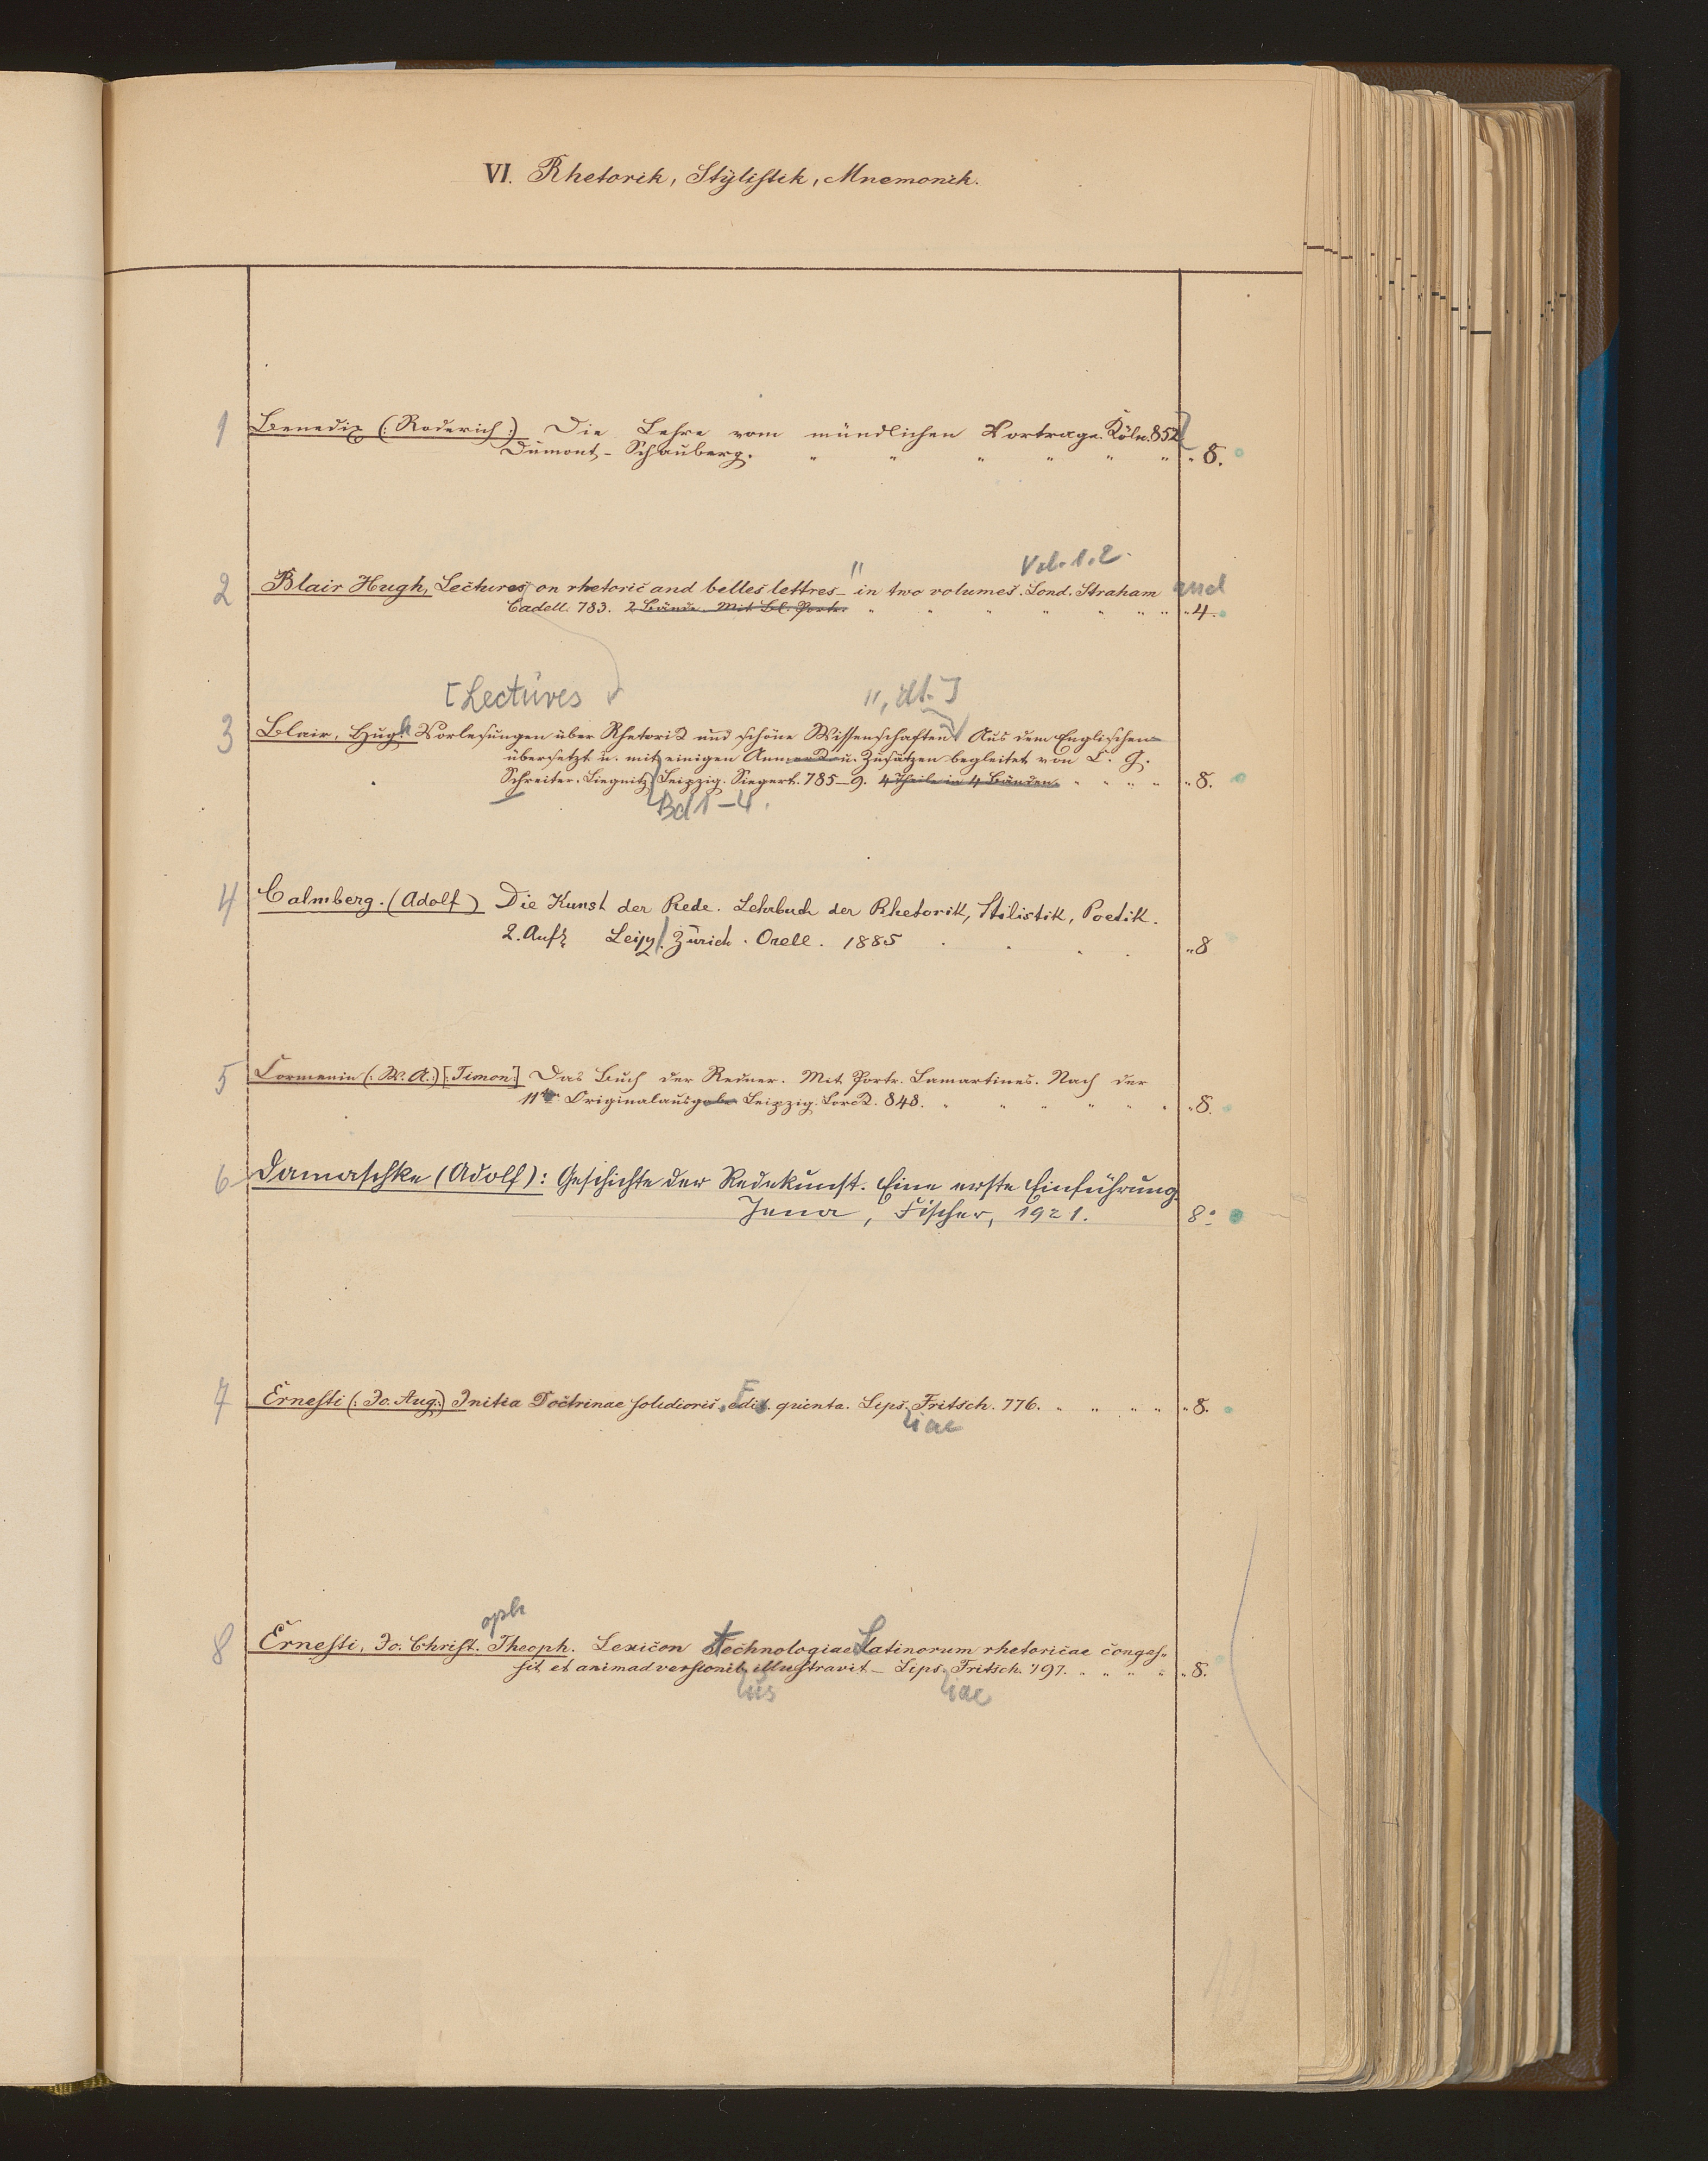 VI. Rhetorik, Stÿlistik, Mnemonik.
1 Benedix (: Roderich :) Die Lehre vom mündlichen Vortrage. Köln. 852
Dümont-Schauberg. " " " " " " " 8.
Vol. 1. 2.
2 Blair Hugh, Lectures on rhetoric and belles lettres – in two volumes. Lond. Straham and
Cadell. 783. 2 Bände. Mit Bl. Portr. " " " " " " " " 4.
[Lectures ", dt.]
3 Blair, Hugh Vorlesungen über Rhetorik und schöne Wissenschaften Aus dem Englischen
übersetzt u. mit einigen Anmerk u. Zusätzen begleitet von C. G.
Schreiter. Liegnitz Leipzig. Siegert. 785–9. 4 Theile in 4 Bänden. " " " " " 8.
Bd 1–4.
4 Calmberg. (Adolf) Die Kunst der Rede. Lehrbuch der Rhetorik, Stilistik, Poetik.
2. Aufl Leipz. Zürich. Orell. 1885 . . . . " 8
5 Cormenin (: W. A. :) [: Timon :] Das Buch der Redner. Mit Portr. Lamartines. Nach der
11ten Originalausgabe Leipzig. Lorck. 848. " " " " " " " 8.
6 Damaschke (Adolf): Geschichte der Redekunst. Eine erste Einführung.
Jena, Fischer, 1921. 8°
7 Ernesti (: Jo. Aug.) Initia Doctrinae solidioris. Edit. quinta. Lips. Fritsch. 776. " " " " " 8.
iae
oph
8 Ernesti, Jo. Christ. Theoph. Lexicon technologiae Latinorum rhetoricae conges-
sit et animadversionib. illustravit – Lips. Fritsch. 797. " " " " " 8.
us iae